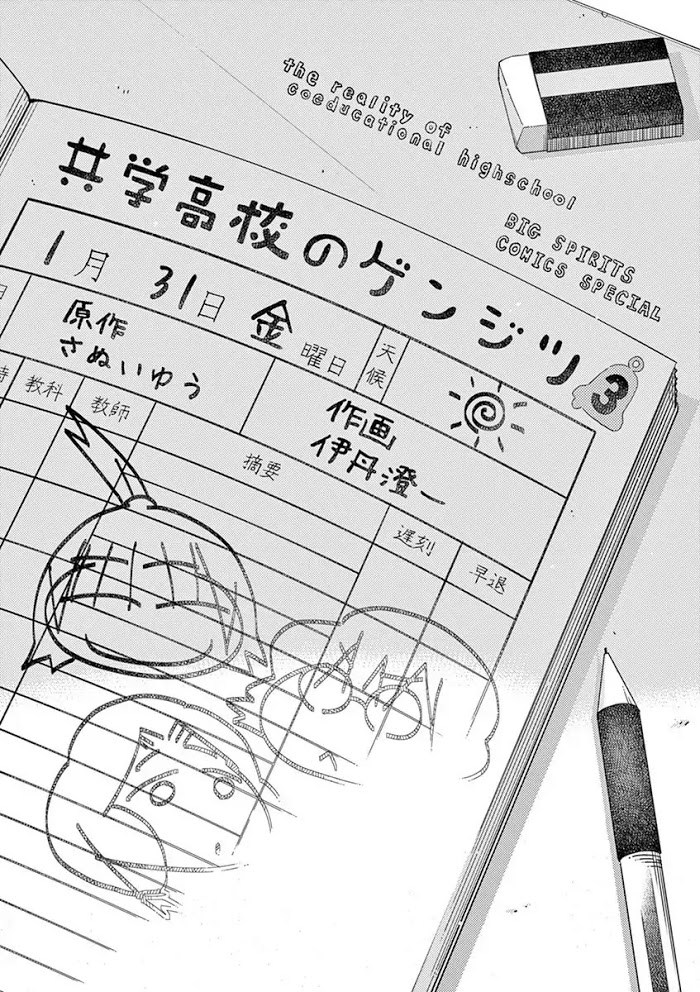 the reality of
coeducational highschool
BIG SPIRITS
COMICS SPECIAL
共学高校のゲンジツ3
1月31日金曜日 天候
原作
さぬいゆう
作画
伊丹澄一
教科 教師 摘要 遅刻 早退